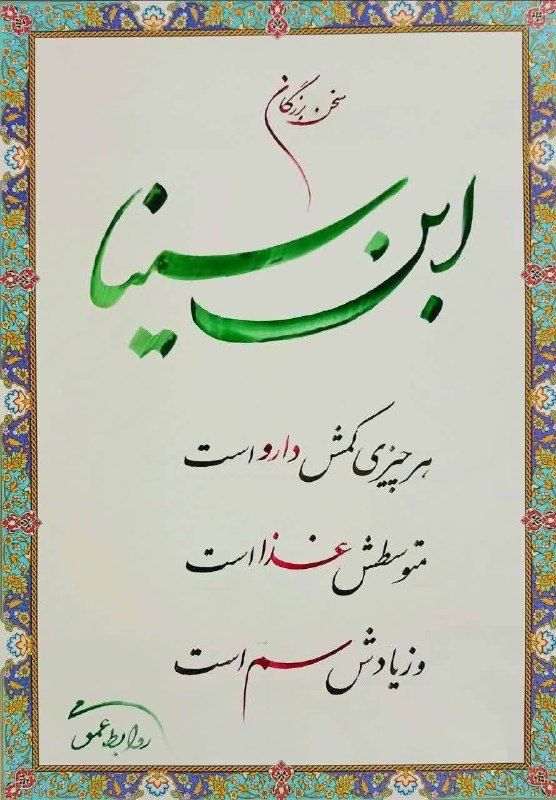 سخن بزرگان
ابن سینا
هر چیزی کمش دارو است
متوسطش غذا است
و زیادش سم است
روابط عمومی